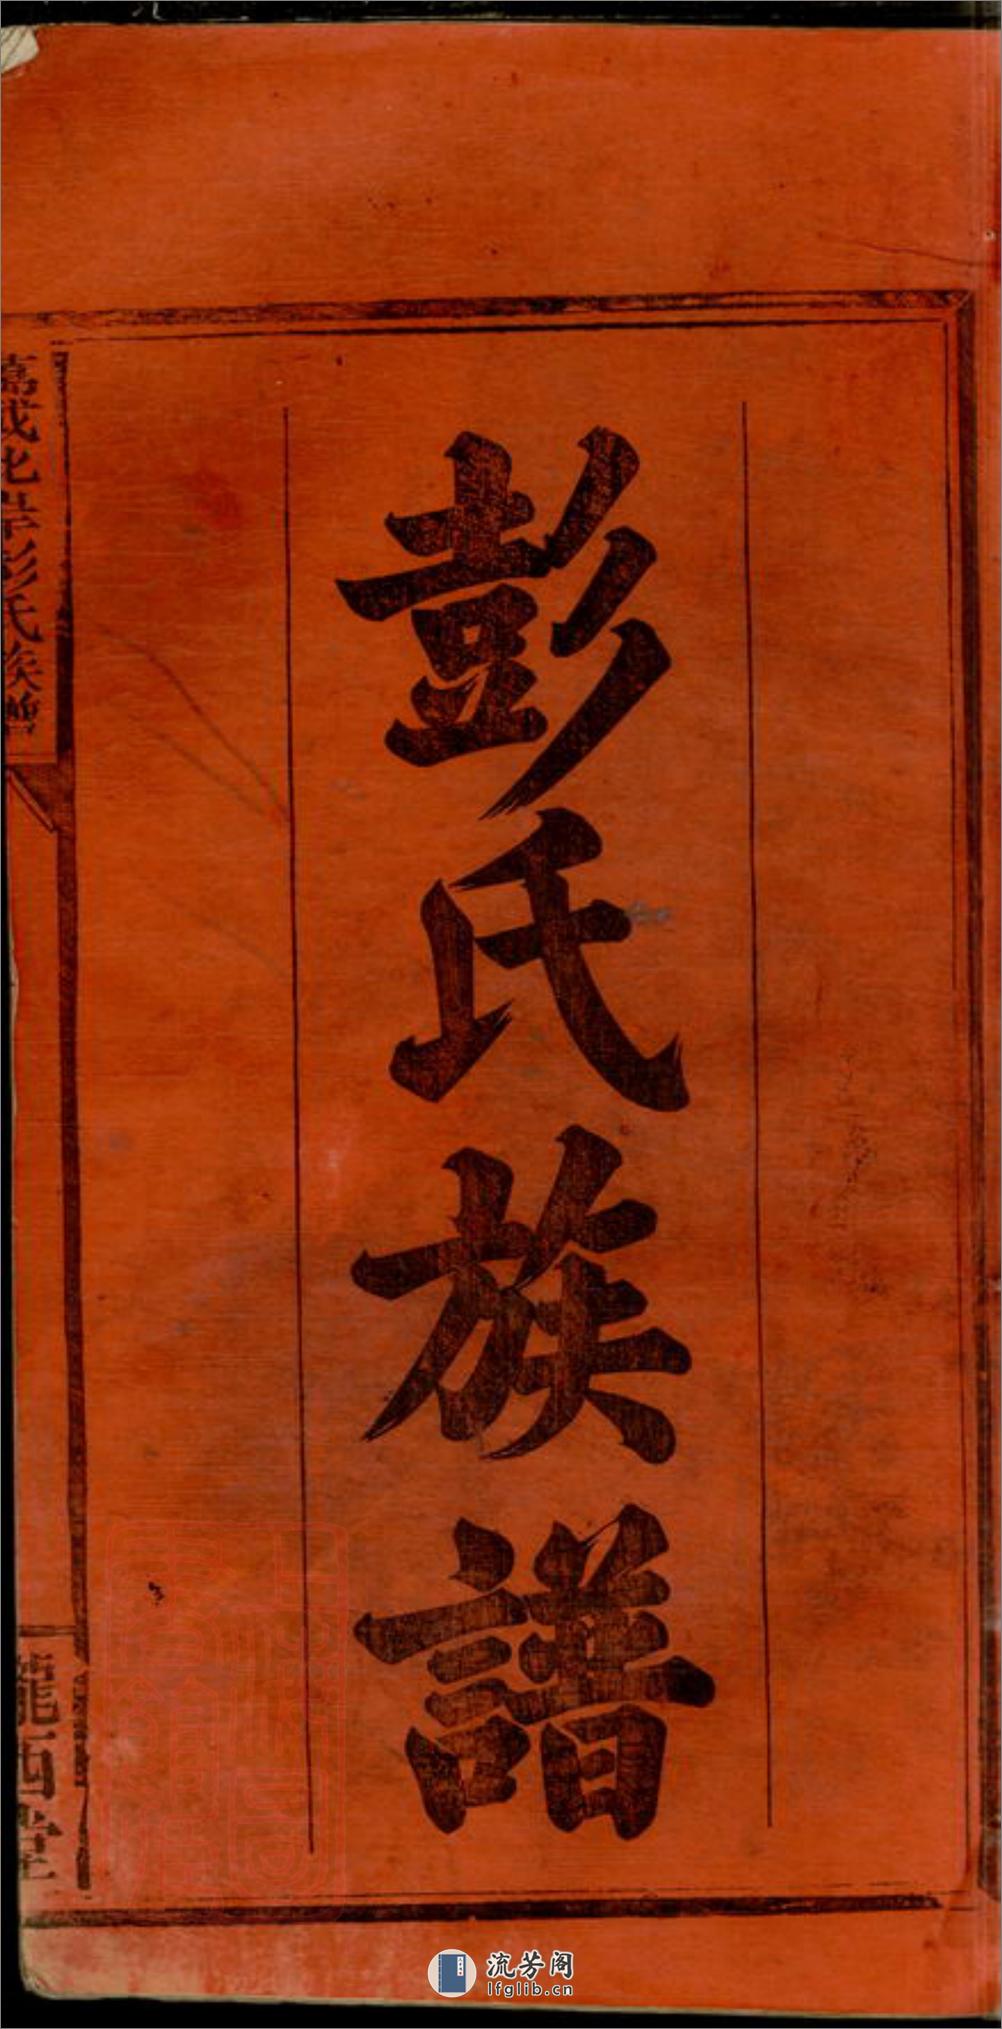 彭氏族譜
彭氏族譜
隴西堂
流芳阁
lfglib.cn